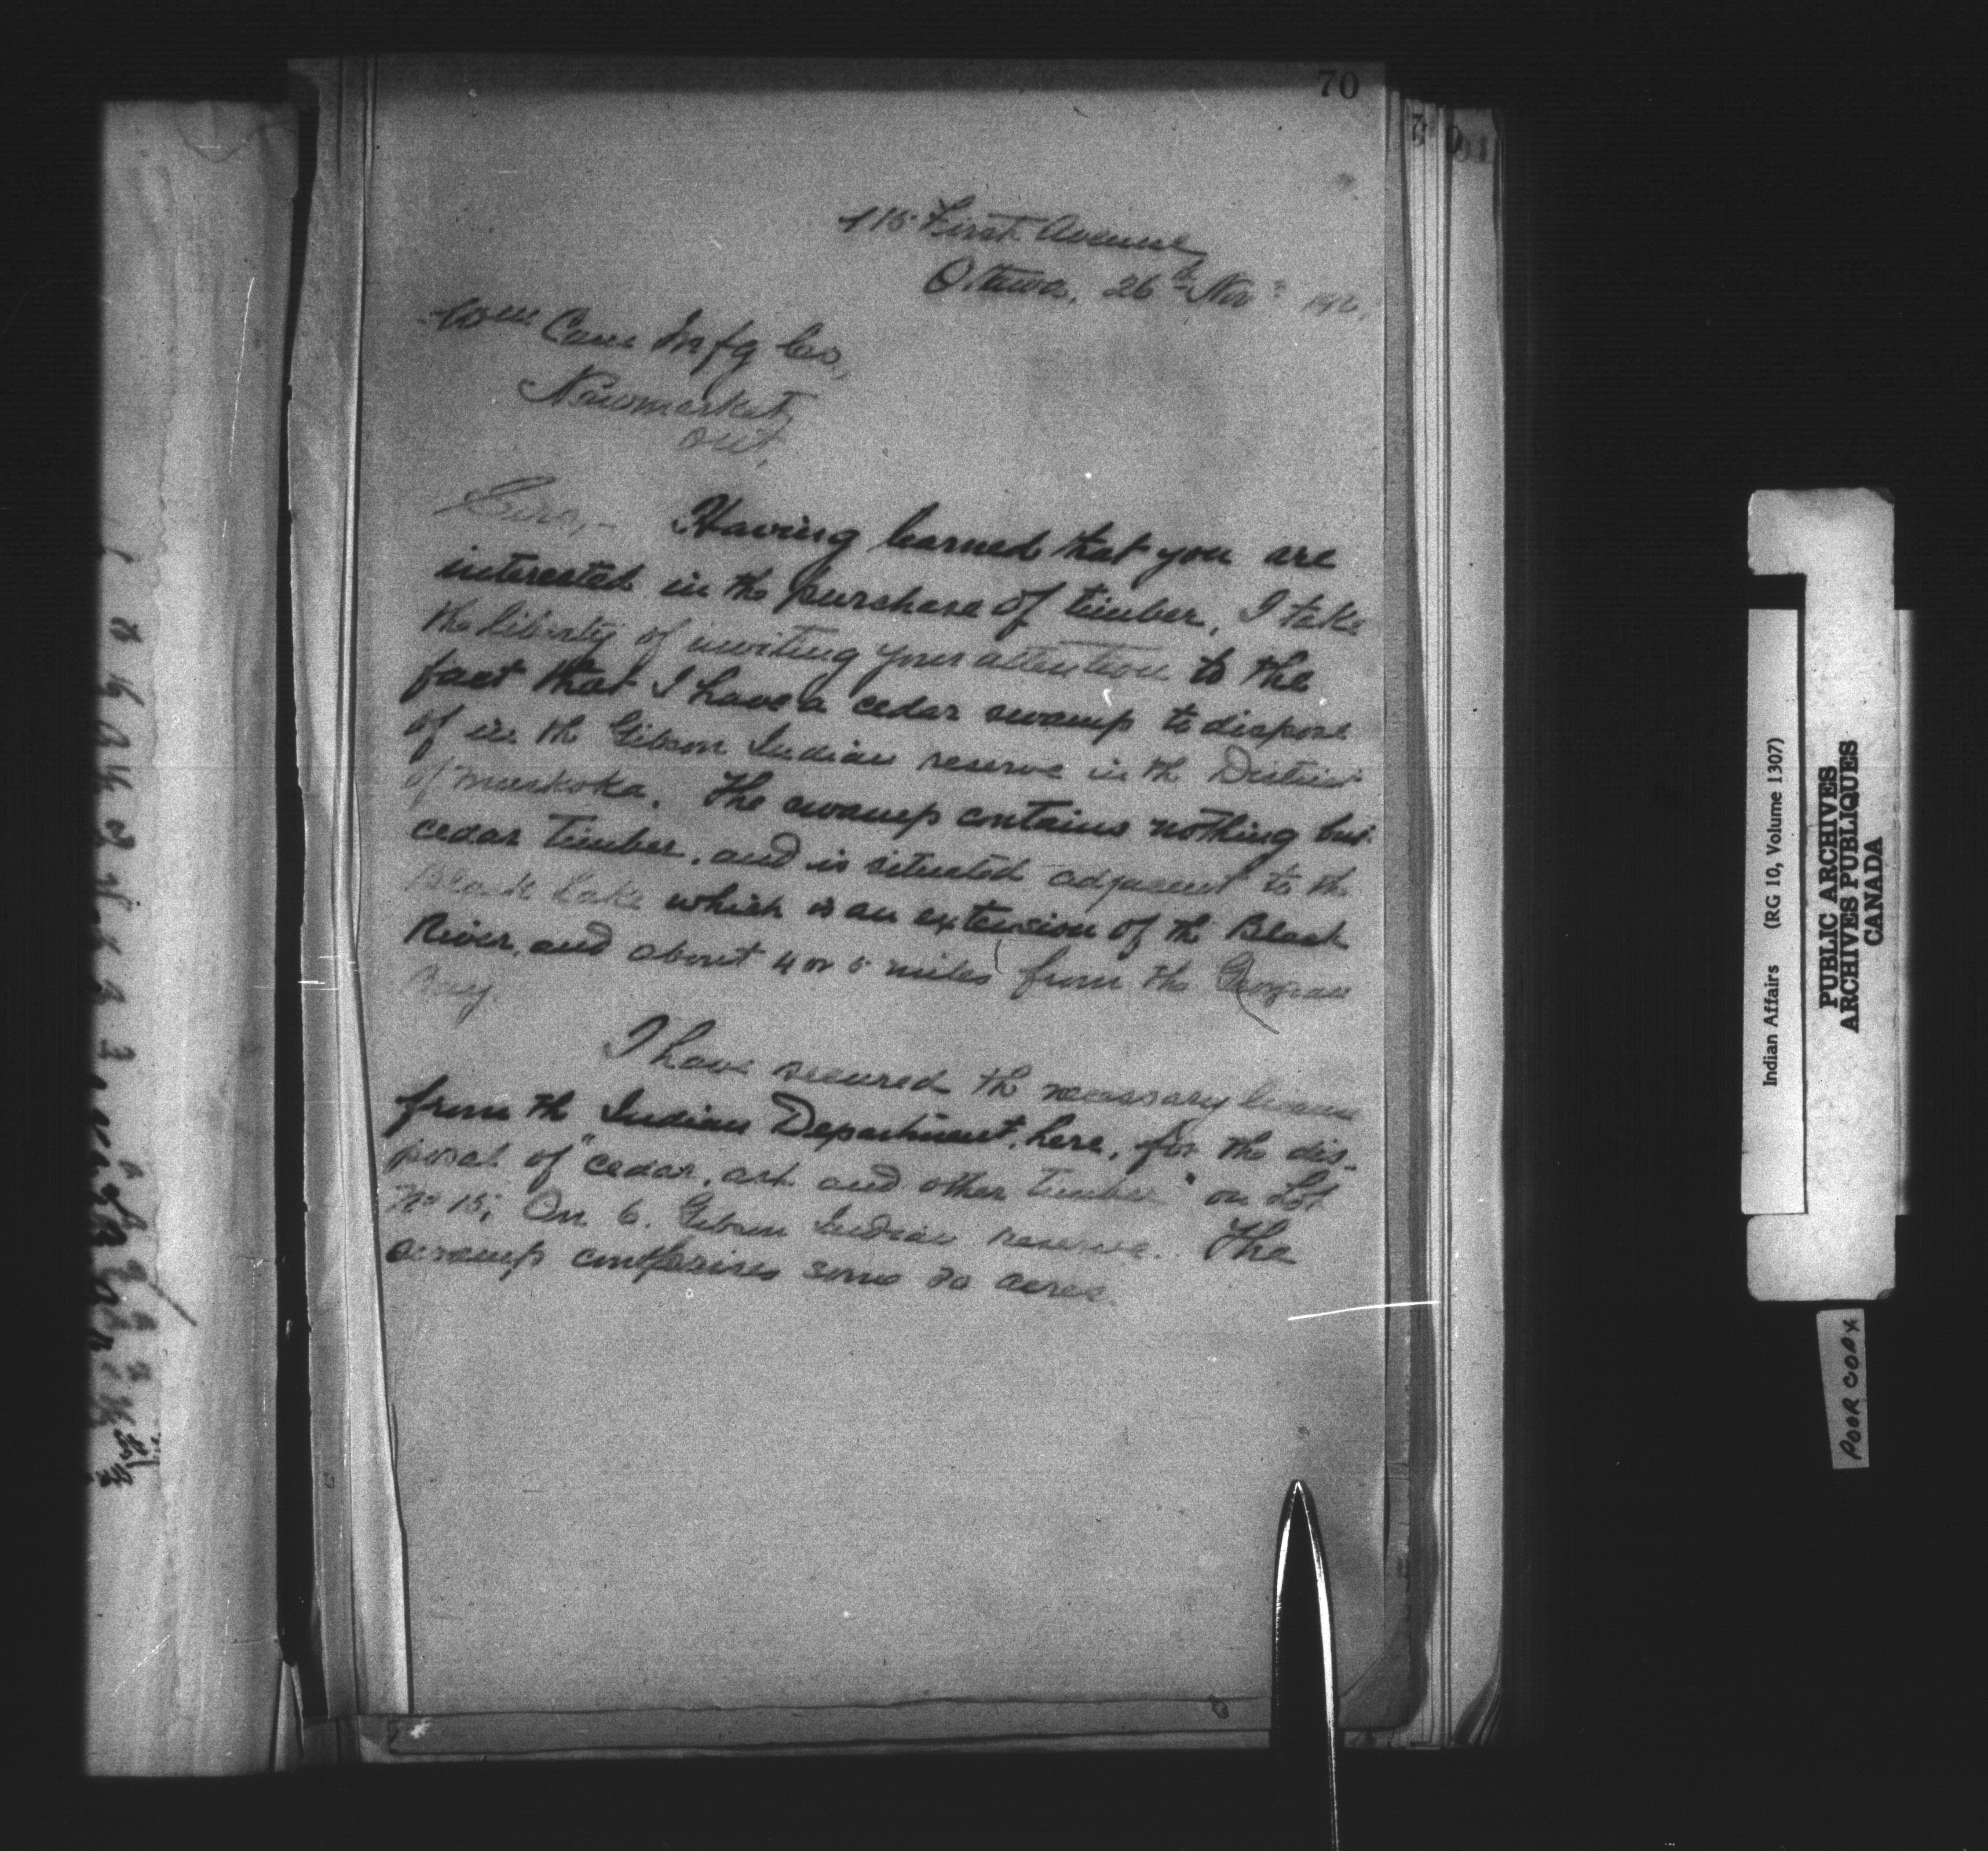 70
115 First Avenue,
Ottawa, 26th Nov.
Wm Cane Mfg Co,
Newmarket,
Ont.
Sirs,- Having learned that you are
interested in the purchase of timber, I take
the liberty of inviting your attention to the
fact that I have a cedar swamp to dispose
of in the Gibson Indian reserve in the District
of Muskoka. The swamp contains nothing but
cedar timber, and is situated adjacent to the
Black Lake which is an extension of the Black
River, and about 4 or 5 miles from the Georgian
Bay.
I have secured the necessary license
from the Indian Department, here, for the dis-
posal of "cedar, ash and other timber" on Lot
No 15, Con 6. Gibson Indian reserve. The
swamp comprises some 30 acres.
Indian Affairs (RG 10, Volume 1307)
PUBLIC ARCHIVES
ARCHIVES PUBLIQUES
CANADA
POOR COPY